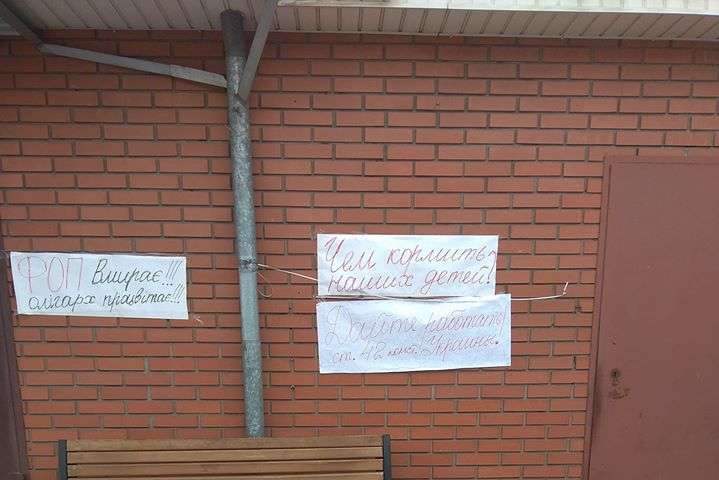 ФОП Вмирає!!!
олігарх процвітає!!!
Чем кормить
наших детей?
Дайте работать!
ст. 42 конст. Украины.